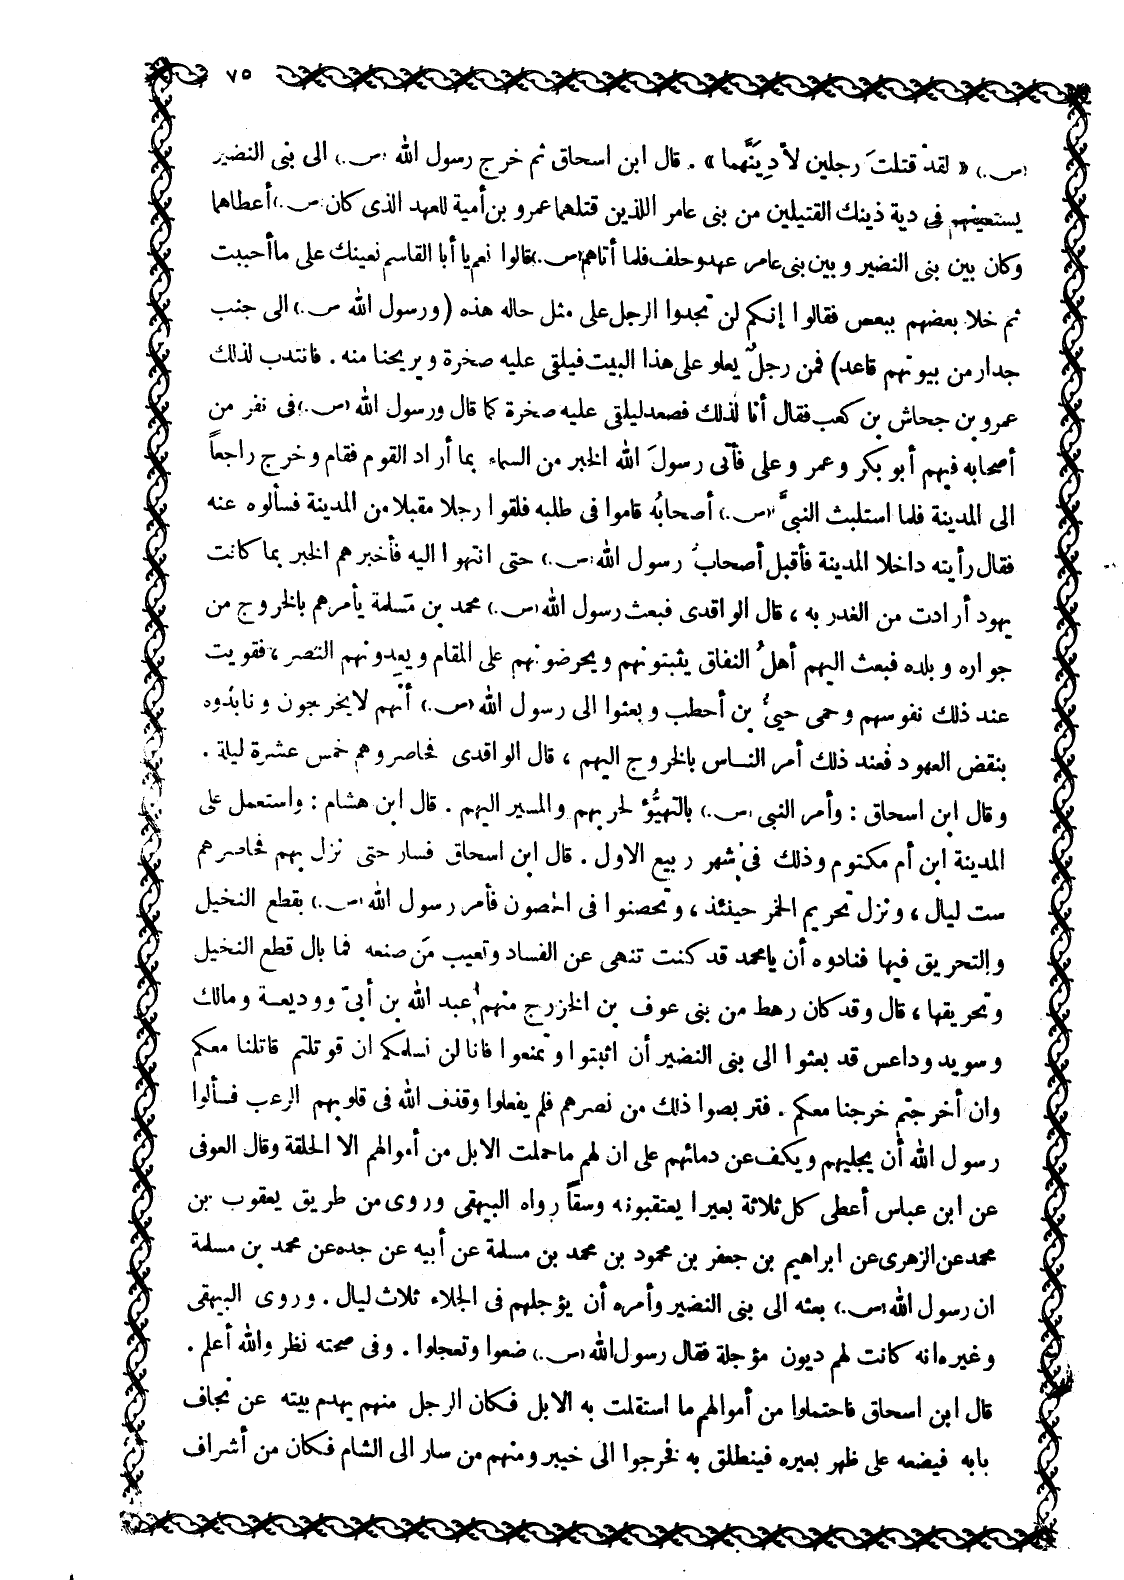 ٧٥
(ص.) « لقدْ قتلتَ رجلين لأدِيَنَّهما » . قال ابن اسحاق ثم خرج رسول الله (ص.) الى بنى النضير
يستعينهم فى دية ذينك القتيلين من بنى عامر اللذين قتلهما عمرو بن أمية للعهد الذى كان (ص.) أعطاهما
وكان بين بنى النضير وبين بنى عامر عهد وحلف فلما أتاهم (ص.) قالوا نعم يا أبا القاسم نعينك على ما أحببت
ثم خلا بعضهم ببعض فقالوا إنكم لن تجدوا الرجل على مثل حاله هذه ( ورسول الله ص.) الى جنب
جدار من بيوتهم قاعد) فمن رجلٌ يعلو على هذا البيت فيلقى عليه صخرة ويريحنا منه . فانتدب لذلك
عمرو بن جحاش بن كعب فقال أنا لذلك فصعد ليلقى عليه صخرة كما قال ورسول الله (ص.) فى نفر من
أصحابه فيهم أبو بكر وعمر وعلى فأتى رسولَ الله الخبر من السماء بما أراد القوم فقام وخرج راجعاً
الى المدينة فلما استلبث النبىَّ (ص.) أصحابُه قاموا فى طلبه فلقوا رجلا مقبلا من المدينة فسألوه عنه
فقال رأيته داخلا المدينة فأقبل أصحابُ رسول الله (ص.) حتى انتهوا اليه فأخبرهم الخبر بما كانت
يهود أرادت من الغدر به ، قال الواقدى فبعث رسول الله (ص.) محمد بن مسلمة يأمرهم بالخروج من
جواره وبلده فبعث اليهم أهلُ النفاق يثبتونهم ويحرضونهم على المقام ويعِدونهم النصر ، فقويت
عند ذلك نفوسهم وحمى حيىُّ بن أخطب وبعثوا الى رسول الله (ص.) أنهم لا يخرجون ونابذوه
بنقض العهود فعند ذلك أمر الناس بالخروج اليهم ، قال الواقدى فحاصروهم خمس عشرة ليلة .
وقال ابن اسحاق : وأمر النبى (ص.) بالتهيُّؤ لحربهم والمسير اليهم . قال ابن هشام : واستعمل على
المدينة ابن أم مكتوم وذلك فى شهر ربيع الاول . قال ابن اسحاق فسار حتى نزل بهم فحاصرهم
ست ليال ، ونزل تحريم الخمر حينئذ ، وتحصنوا فى الحصون فأمر رسول الله (ص.) بقطع النخيل
والتحريق فيها فنادوه أن يا محمد قد كنت تنهى عن الفساد وتعيب مَن صنعه فما بال قطع النخيل
وتحريقها ، قال وقد كان رهط من بنى عوف بن الخزرج منهم عبد الله بن أبىّ ووديعة ومالك
وسويد وداعس قد بعثوا الى بنى النضير أن اثبتوا وتمنعوا فانا لن نسلمكم ان قوتلتم قاتلنا معكم
وان أخرجتم خرجنا معكم . فتربصوا ذلك من نصرهم فلم يفعلوا وقذف الله فى قلوبهم الرعب فسألوا
رسول الله أن يجليهم ويكف عن دمائهم على ان لهم ما حملت الابل من أموالهم الا الحلقة وقال العوفى
عن ابن عباس أعطى كل ثلاثة بعيرا يعتقبونه وسقاً رواه البيهقى وروى من طريق يعقوب بن
محمد عن الزهرى عن ابراهيم بن جعفر بن محمود بن محمد بن مسلمة عن أبيه عن جده عن محمد بن مسلمة
ان رسول الله (ص.) بعثه الى بنى النضير وأمره أن يؤجلهم فى الجلاء ثلاث ليال . وروى البيهقى
وغيره انه كانت لهم ديون مؤجلة فقال رسول الله (ص.) ضعوا وتعجلوا . وفى صحته نظر والله أعلم .
قال ابن اسحاق فاحتملوا من أموالهم ما استقلت به الابل فكان الرجل منهم يهدم بيته عن نجاف
بابه فيضعه على ظهر بعيره فينطلق به فخرجوا الى خيبر ومنهم من سار الى الشام فكان من أشراف